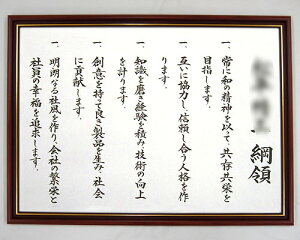 綱領
一、常に和の精神を以って、共存共栄を
目指します。
一、互いに協力し、信頼し合う人格を作
ります。
一、知識を磨き経験を積み、技術の向上
を計ります。
一、創意を持って良き製品を生み、社会
に貢献します。
一、明朗なる社風を作り、会社の繁栄と
社員の幸福を追求します。